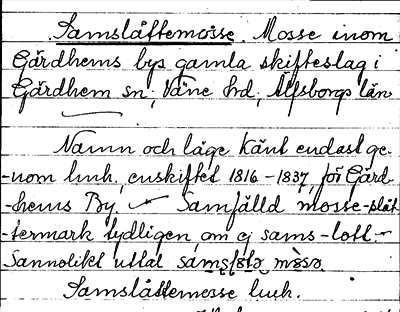 Samslåttemosse. Mosse inom
Gärdhems bys gamla skifteslag i
Gärdhem sn, Väne hd, Älfsborgs län
Namn och läge känt endast ge-
-nom lmh., enskiftet 1816-1837, för Gärd-
-hems By. Samfälld mosse-slåt-
-termark tydligen, om ej sams-lott.-
Sannolikt uttal
Samslåttemosse lmh.